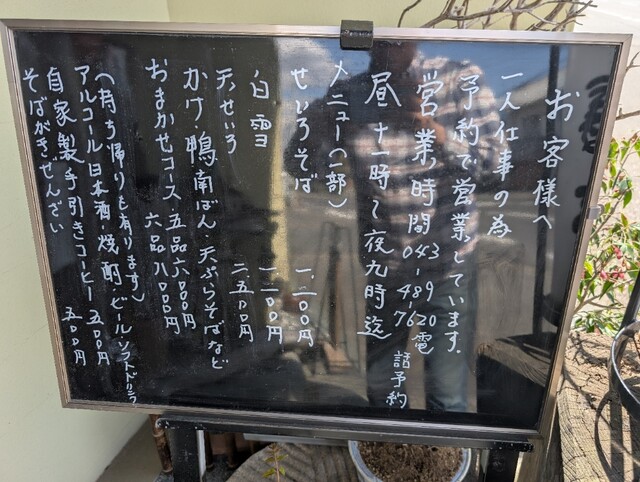 お客様へ
一人仕事の為
予約で営業しています.
営業時間 043-489-7620 電話予約
昼十一時〜夜九時迄
メニュー(一部)
せいろそば 一、二〇〇円
白雪 一、二〇〇円
天せいろ 二、五〇〇円
かけ 鴨南ばん・天ぷらそばなど
おまかせコース 五品六〇〇〇円
六品八〇〇〇円
(持ち帰りも有ります)
アルコール 日本酒・焼酎 ビール ソフトドリンク
自家製手引きコーヒー 五〇〇円
そばがきぜんざい 五〇〇円